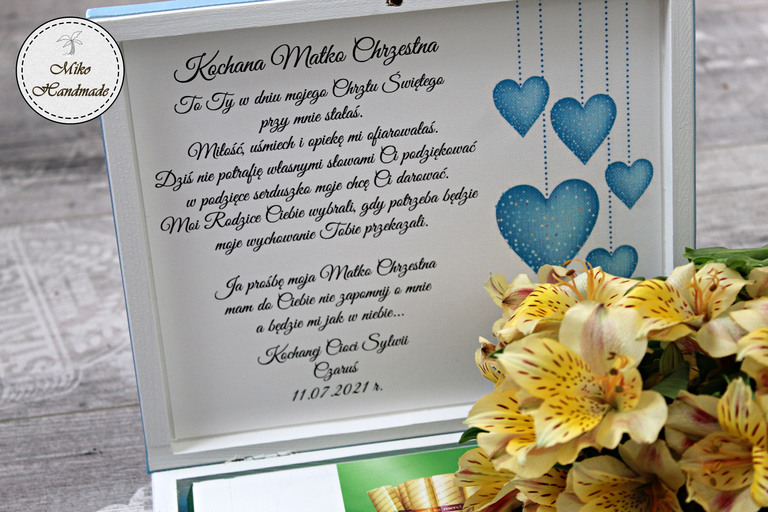 Miko
Handmade
Kochana Matko Chrzestna
To Ty w dniu mojego Chrztu Świętego
przy mnie stałaś.
Miłość, uśmiech i opiekę mi ofiarowałaś.
Dziś nie potrafię własnymi słowami Ci podziękować
w podzięce serduszko moje chcę Ci darować.
Moi Rodzice Ciebie wybrali, gdy potrzeba będzie
moje wychowanie Tobie przekazali.
Ja prośbę moja Matko Chrzestna
mam do Ciebie nie zapomnij o mnie
a będzie mi jak w niebie...
Kochanej Cioci Sylwii
Czaruś
11.07.2021 r.